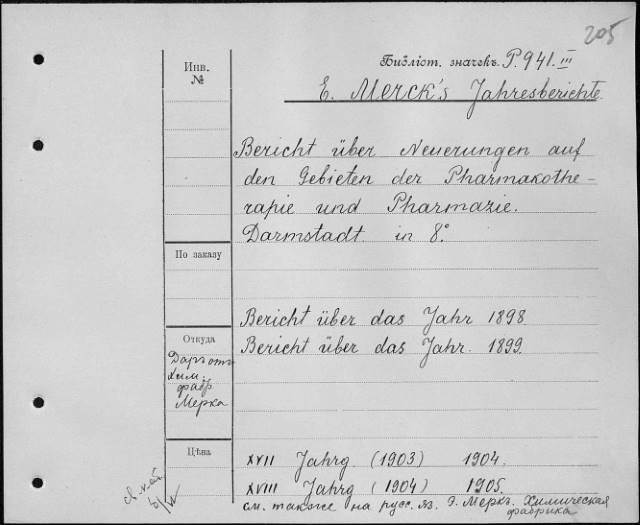 205
Библіот. значекъ P. 941. III
Инв.
№
E. Merck's Jahresberichte.
Bericht über Neuerungen auf
den Gebieten der Pharmakothe-
rapie und Pharmazie.
Darmstadt. in 8°.
По заказу
Bericht über das Jahr 1898
Bericht über das Jahr. 1899
Откуда
Даръ отъ
Хим.
фабр
Мерка
Цѣна
XVII Jahrg. (1903) 1904.
XVIII Jahrg. (1904) 1905.
см. также на русс. яз. Э. Меркъ. Химическая
фабрика